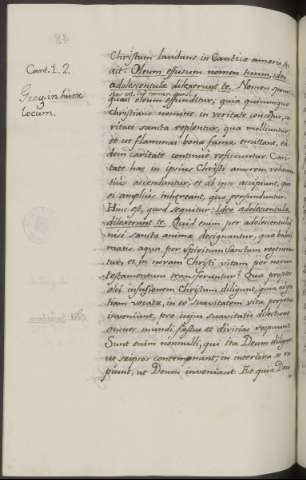 Cant. 1. 2.
Greg. in hunc
Locum.
Christum laudans in Cantico amoris,
ait: Oleum effusum nomen tuum, ideo
adolescentulæ dilexerunt te. Nomen sponsi
quasi oleum effunditur, quia quicunque
Christiano nomine in veritate
ritate sancta replentur, qua molliuntur
et ut flammas bonæ famæ emittant, ea
dem caritate continuo reficiuntur. Cari
tate hac in ipsius Christi amorem vehemen
tius accenduntur, et ab ipso accipiunt, quo
ei amplius inhæreant, quo profundunt.
Hinc est, quod sequitur: Ideo adolescentulæ
dilexerunt te. Quid enim per adolescentulas
nisi sancta animæ designantur, quæ baptis
matis aqua per Spiritum Sanctum regeneran
tur, et in novam Christi vitam per novum
testamentum transferuntur? Quæ propter
olei infusionem Christum diligunt, quia
tiam vocatæ, in eo suavitatem vitæ perpetuæ
inveniunt, pro cujus suavitatis dilectione
omnes mundi fastus et divitias respuunt.
Sunt enim nonnulli, qui ita Deum diligunt,
ut seipsos contemnant; in interiora se ra
piunt, ut Deum inveniant. Et quia Deum